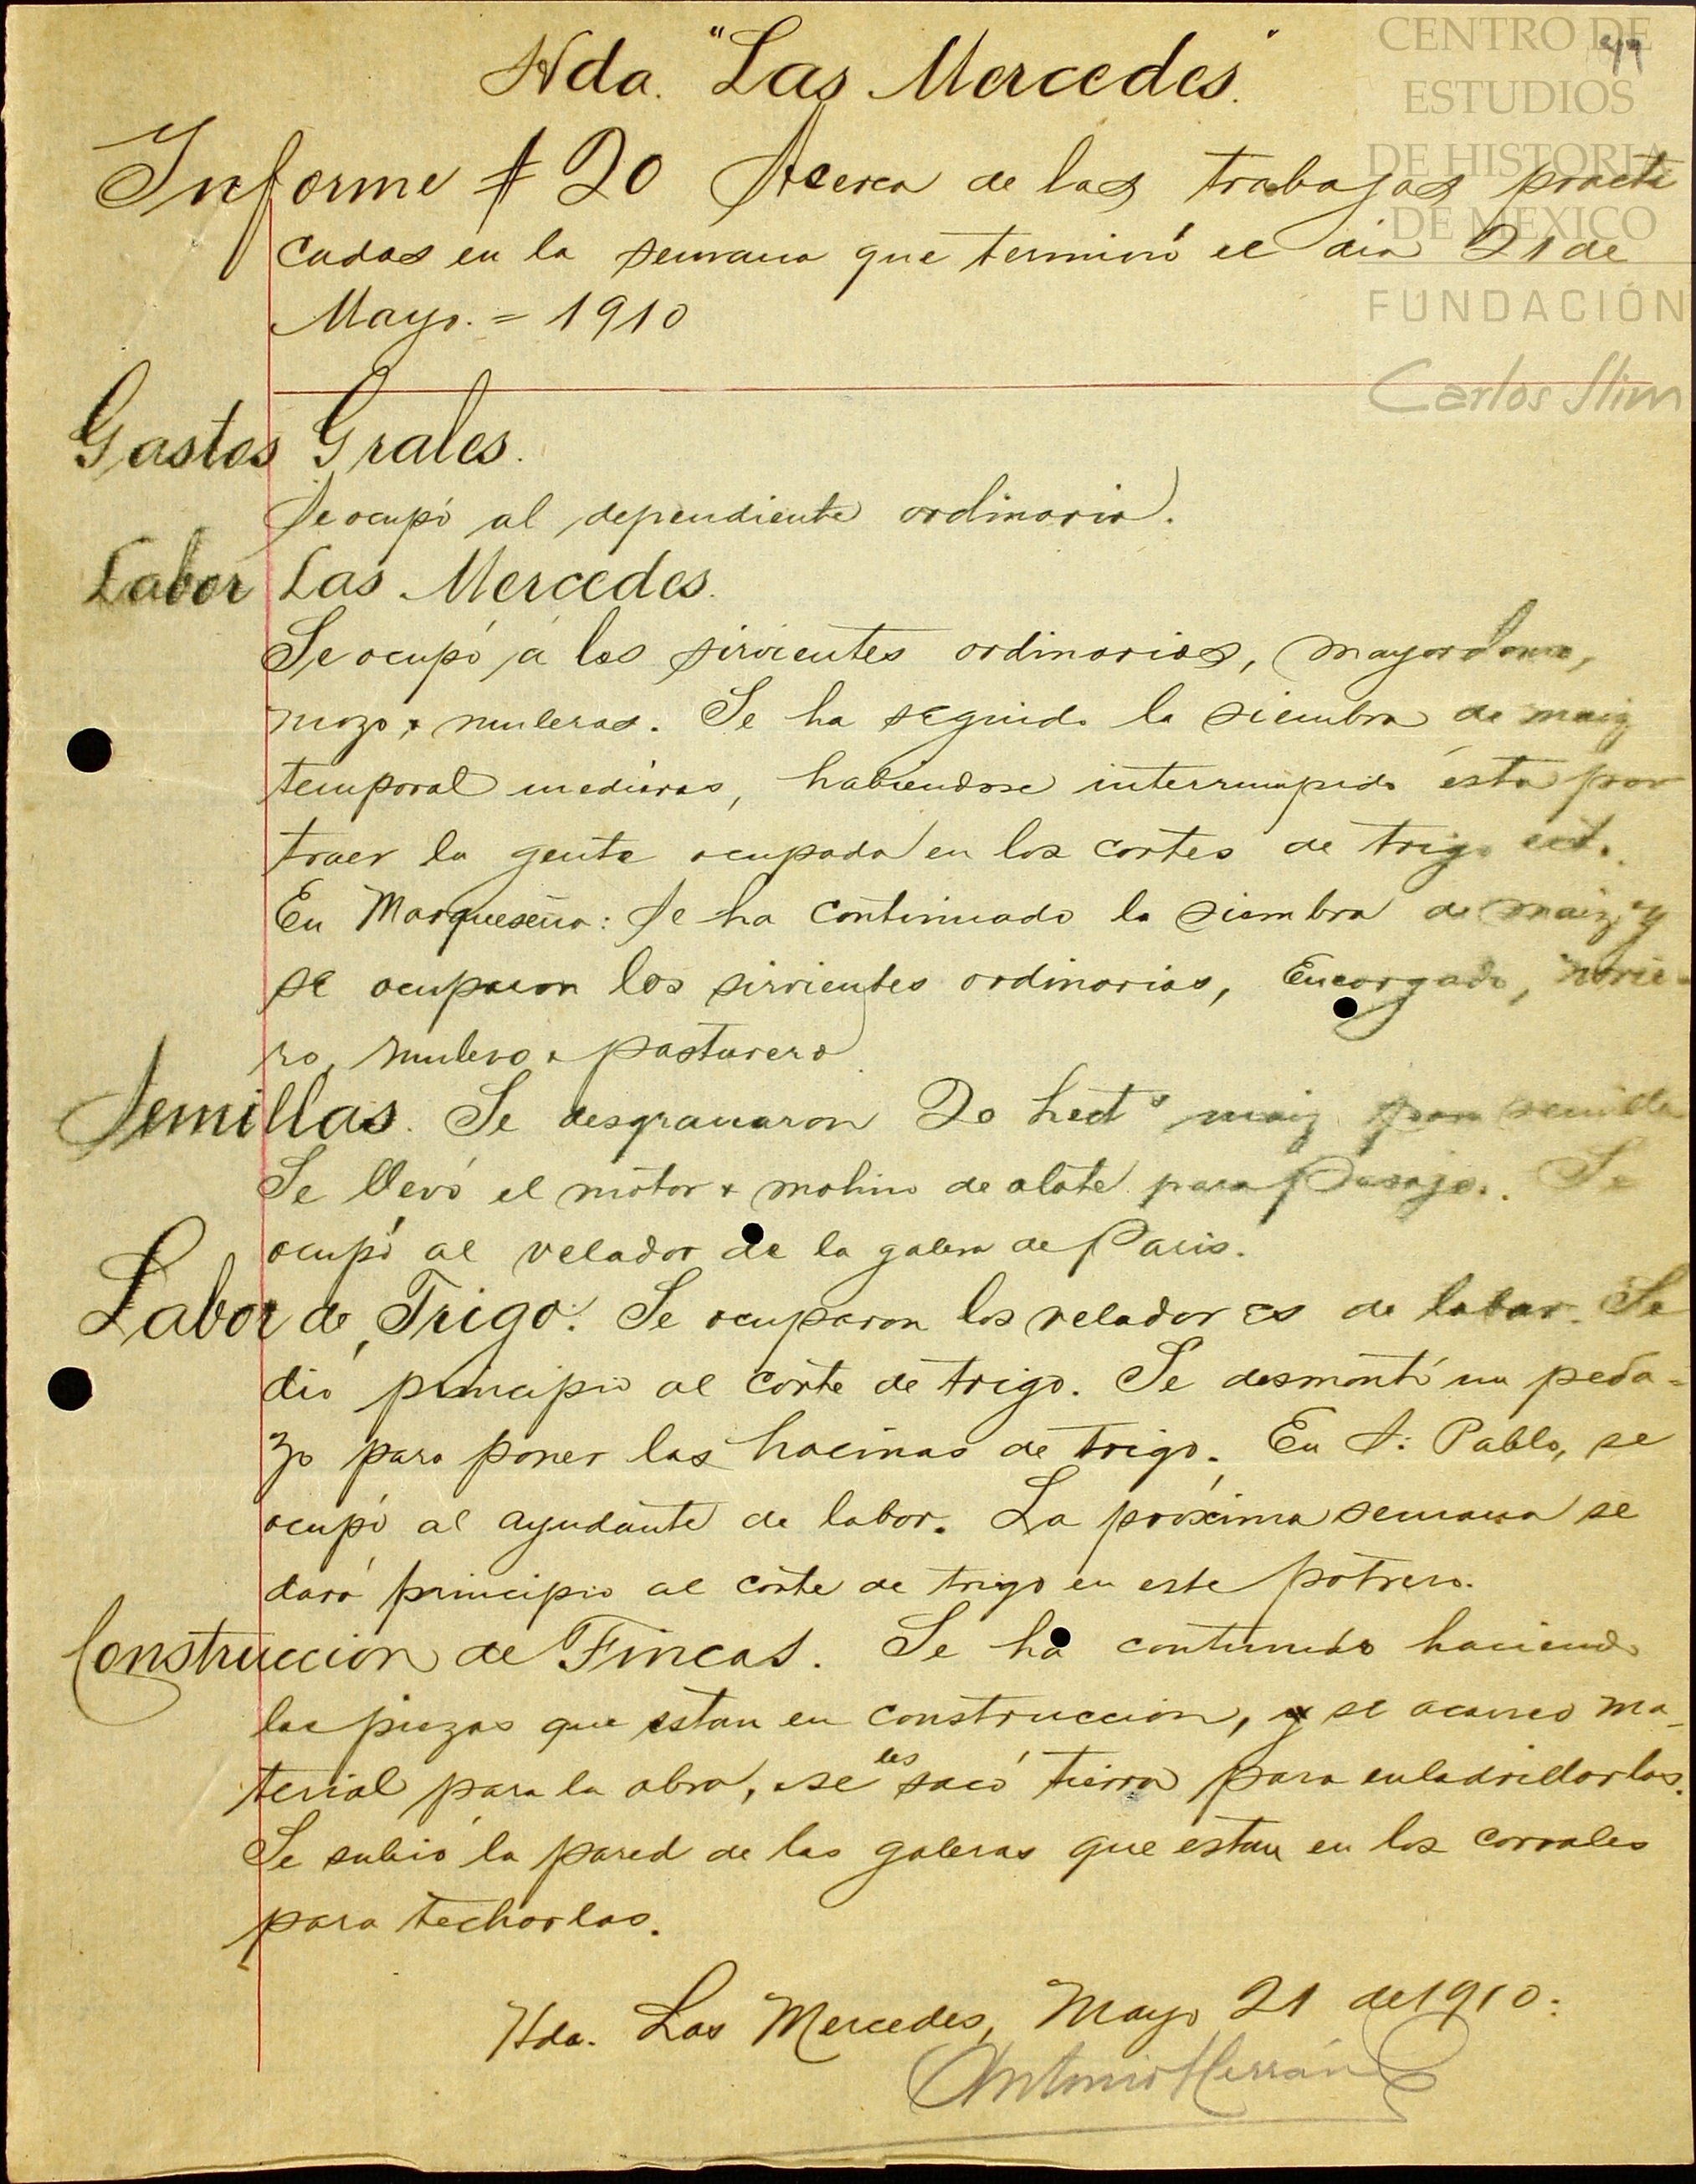 Hda. "Las Mercedes"
CENTRO DE
ESTUDIOS
DE HISTORIA
DE MEXICO
FUNDACIÓN
Carlos Slim
Informe # 20 Acerca de los trabajos practi
cados en la semana que terminó el dia 21 de
Mayo. = 1910
Gastos Grales.
Se ocupó al dependiente ordinario.
Labor Las Mercedes.
Se ocupó á los sirvientes ordinarios, mayordomo,
mozo, + muleros. Se ha seguido la siembra de maiz
temporal medieros, habiendose interrumpido ésta por
traer la gente ocupada en los cortes de trigo ect.
En Marqueseña: Se ha continuado la siembra de maiz y
se ocuparon los sirvientes ordinarios, Encargado, norie-
ro, mulero + pasturero
Semillas. Se desgranaron 20 hects maiz para semilla
Se llevó el motor + molino de olote para Pasaje. Se
ocupó al velador de la galera de Paris.
Labor de Trigo. Se ocuparon los veladores de labor. Se
dió principio al corte de trigo. Se desmontó un peda=
zo para poner las hacinas de trigo. En S: Pablo, se
ocupó al ayudante de labor. La próxima semana se
dará principio al corte de trigo en este potrero.
Construccion de Fincas. Se ha continuado haciendo
las piezas que estan en construccion, y se acarreo ma-
terial para la obra, se les sacó tierra para enladrillarlas.
Se subió la pared de las galeras que estan en los corrales
para techarlas.
Hda. Las Mercedes, Mayo 21 de 1910:
Antonio Herrán